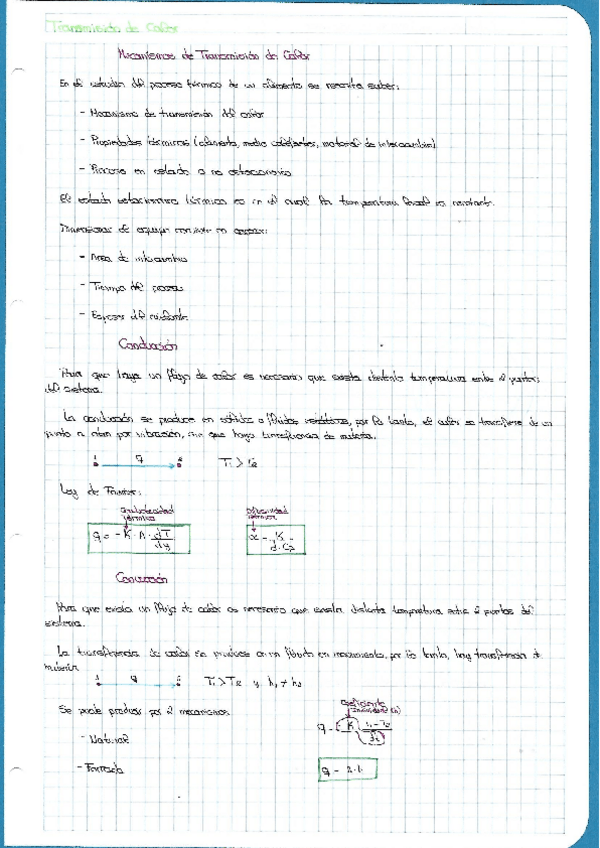 Transmisión de Calor
Mecanismos de Transmisión de Calor
En el estudio del proceso térmico de un alimento se necesita saber:
- Mecanismo de transmisión del calor
- Propiedades térmicas (alimento, medio calefactor, material de intercambio)
- Proceso en estado o no estacionario
El estado estacionario térmico es en el cual la temperatura local es constante.
de equipo consiste en
- Area de intercambio
- Tiempo del proceso
- Espesor del aislante
Conducción
Para que haya un flujo de calor es necesario que exista distinta temperatura entre 2 puntos
del sistema.
La conducción se produce en sólidos o fluidos estáticos, por lo tanto, el calor se transfiere de un
punto a otro por vibración, sin que haya transferencia de materia.
q T₁ > T₂
Ley de Fourier:
conductividad térmica difusividad térmica
q = - K · A · dT/dy α = K / d · Cp
Convección
Para que exista un flujo de calor es necesario que exista distinta temperatura entre 2 puntos del
sistema.
La transferencia de calor se produce en un fluido en movimiento, por lo tanto, hay transferencia de
materia.
q T₁ > T₂ y h₁ ≠ h₂
Se puede producir por 2 mecanismos
coeficiente
- Natural
- Forzada